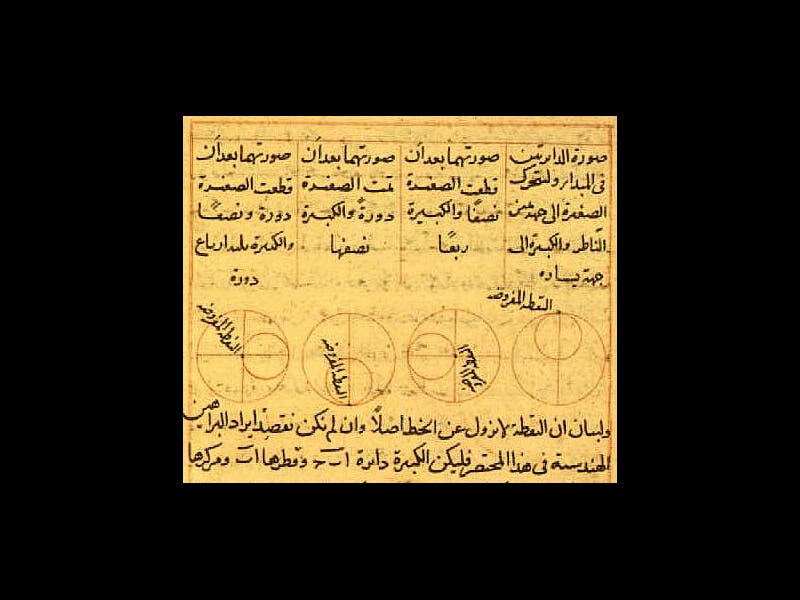 صورة الدائرتين
فى المبدا ولتتحرك
الصغيرة الى جهة يمين
الناظر والكبيرة الى
جهة يساره
صورتهما بعد أن
قطعت الصغيرة
نصفًا والكبيرة
ربعًا
صورتهما بعد أن
تمت الصغيرة
دورةً والكبيرة
نصفها
صورتهما بعد أن
قطعت الصغيرة
دورة ونصفًا
والكبيرة ثلثة ارباع
دورة
النقطة المفروضة
النقطة المفروضة
النقطة المفروضة
النقطة المفروضة
ولبيان ان النقطة لا تزول عن الخط اصلًا وان لم نكن نقصد ايراد البراهين
الهندسية فى هذا المختصر فليكن الكبيرة دائرة اب ح وقطرها اب ومركزها